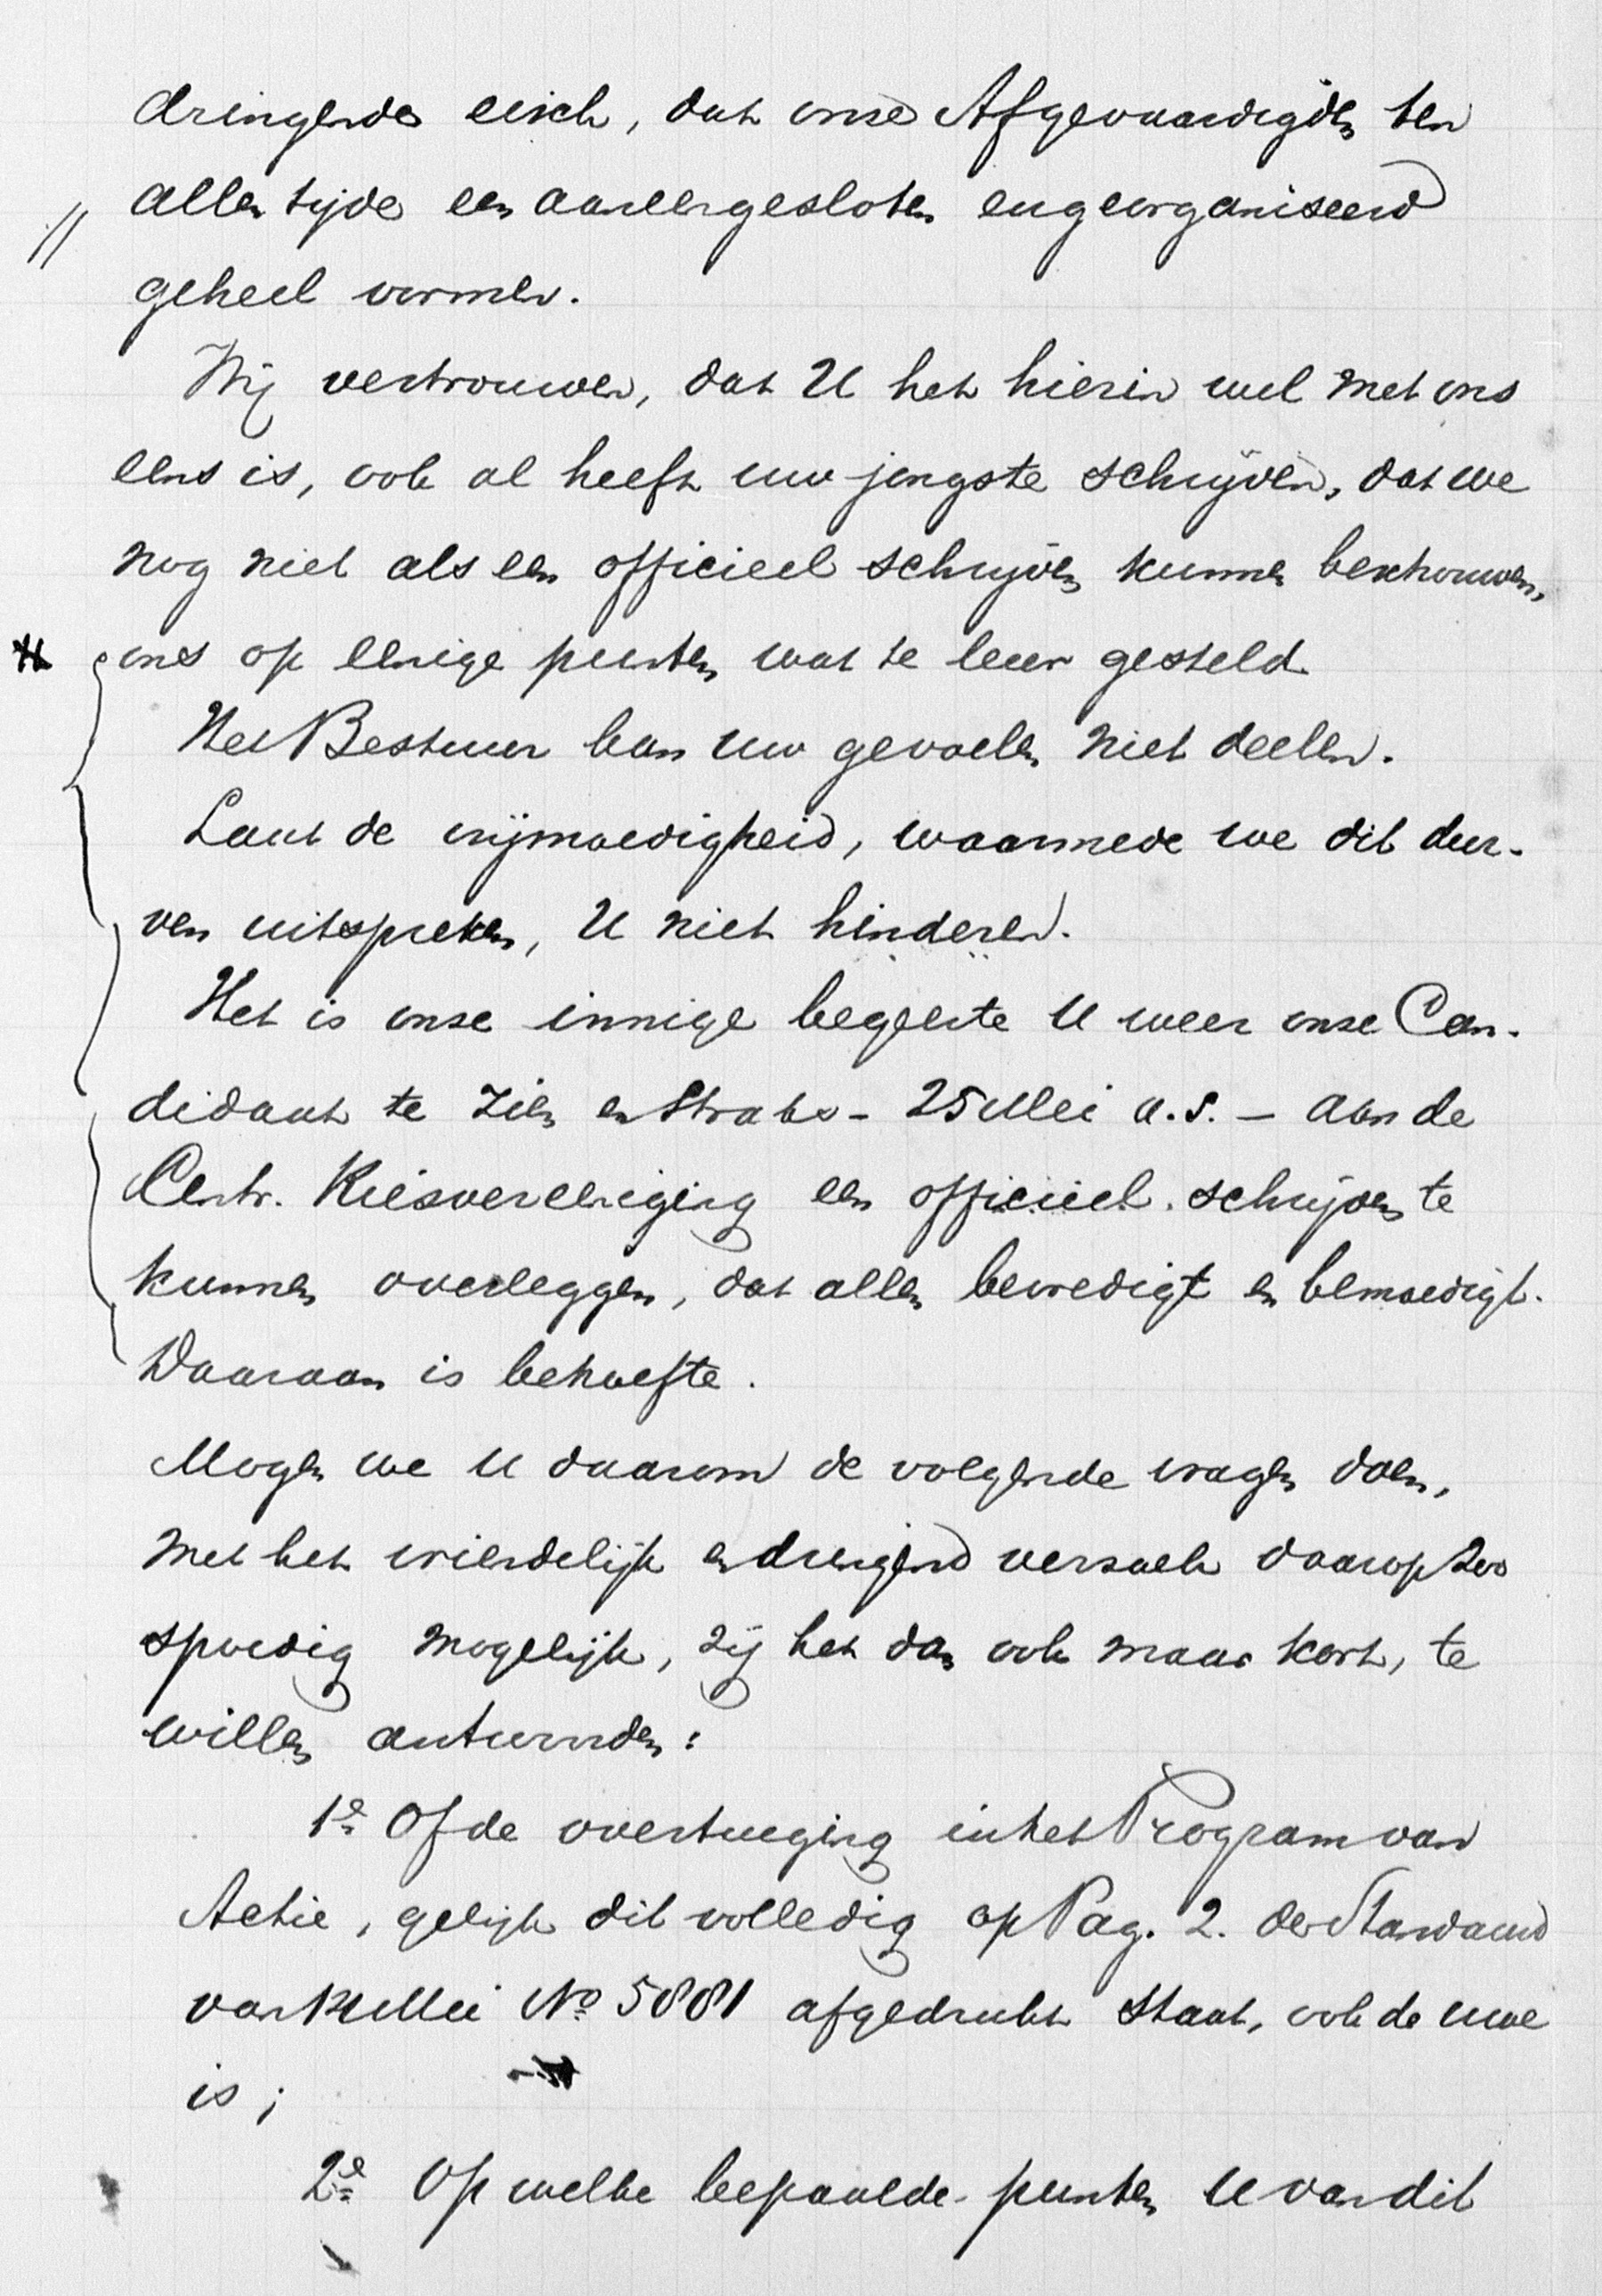 dringende eisch, dat onze Afgevaardigden ten
allen tijde een aaneengesloten en georganiseerd
geheel vormen.
Wij vertrouwen, dat U het hierin wel met ons
eens is, ook al heeft uw jongste schrijven, dat we
nog niet als een officieel schrijven kunnen beschouwen,
ons op eenige punten wat te leur gesteld.
Het Bestuur kan uw gevoelen niet deelen.
Laat de vrijmoedigheid, waarmede we dit dur-
ven uitspreken, U niet hinderen.
Het is onze innige begeerte U weer onze Can-
didaat te zien en straks - 25 Mei a.s. - aan de
Centr. Kiesvereeniging een officieel schrijven te
kunnen overleggen, dat allen bevredigt en bemoedigt.
Daaraan is behoefte.
Mogen we U daarom de volgende vragen doen,
met het vriendelijk en dringend verzoek daarop zoo
spoedig mogelijk, zij het dan ook maar kort, te
willen antwoorden:
1e Of de overtuiging in het Program van
Actie, gelijk dit volledig op Pag. 2. der Standaard
van Mei No 5881 afgedrukt staat, ook de uwe
is;
2e Op welke bepaalde punten U van dit